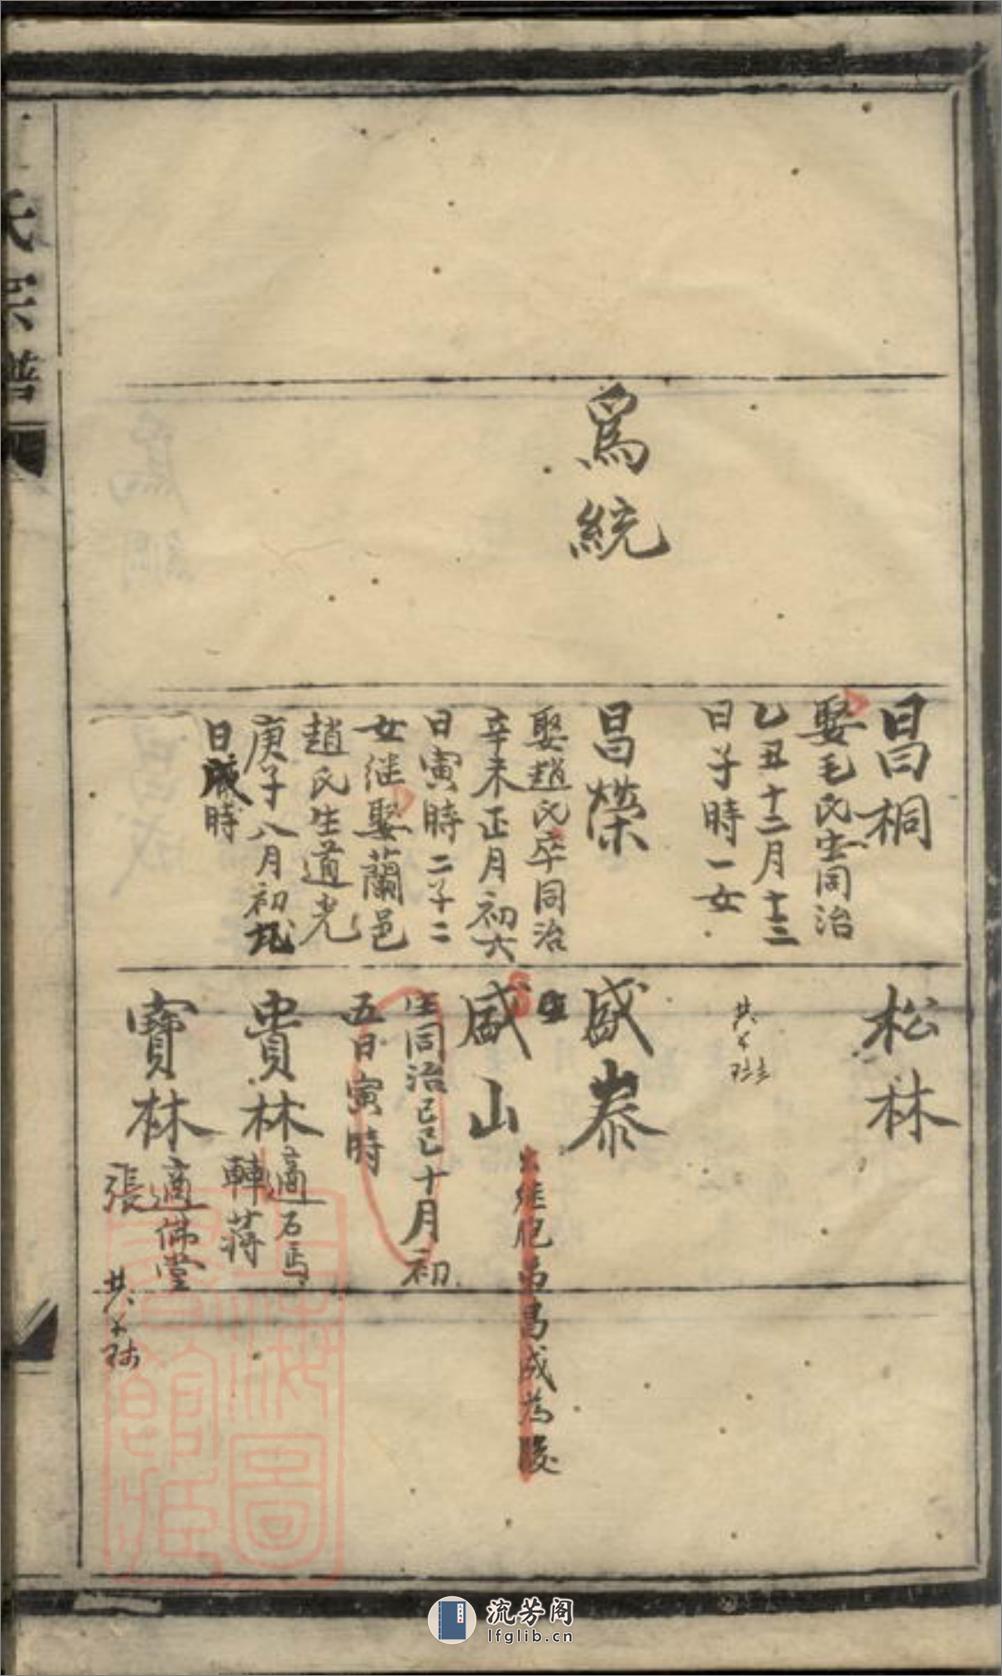 氏宗譜
為統
昌桐
娶毛氏生同治
乙丑十二月十三
日子時一女
昌榮
娶趙氏卒同治
辛未正月初六
日寅時二子二
女继娶蘭邑
趙氏生道光
庚子八月初
日戌時
松林
共
盛泰
盛山
出继胞弟昌成為後
生同治己巳十月初
五日寅時
貴林
適石馬
轉蒋
寶林
適佛堂
張
共
上海圖
書館藏
流芳阁
lfglib.cn